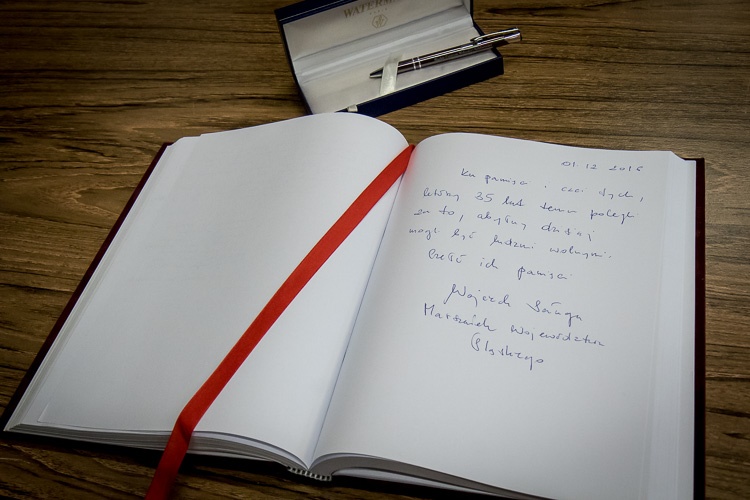 WATERMAN
01.12 2016
Ku pamięci i czci tych,
którzy 35 lat temu polegli
za to, abyśmy dzisiaj
mogli być ludźmi wolnymi.
Cześć ich pamięci
Wojciech Saługa
Marszałek Województwa
Śląskiego